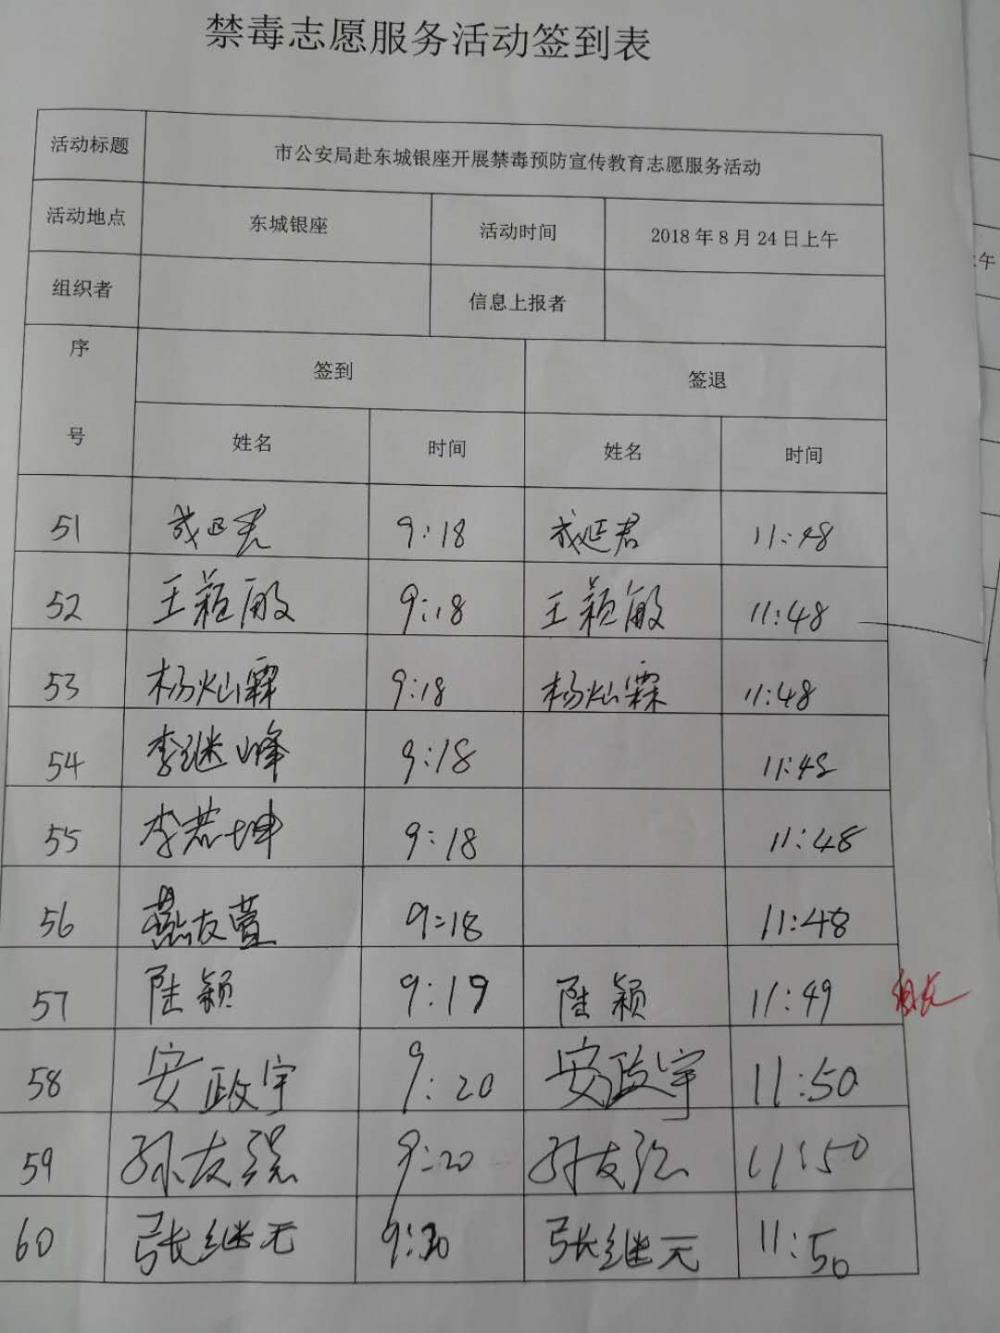 禁毒志愿服务活动签到表
活动标题 市公安局赴东城银座开展禁毒预防宣传教育志愿服务活动
活动地点 东城银座 活动时间 2018年8月24日上午
组织者 信息上报者
午
序号 签到 签退
姓名 时间 姓名 时间
51 成延君 9:18 成延君 11:48
52 王颖敏 9:18 王颖敏 11:48
53 杨灿霖 9:18 杨灿霖 11:48
54 李继峰 9:18 11:48
55 李若坤 9:18 11:48
56 燕友萱 9:18 11:48
57 陆颖 9:19 陆颖 11:49 组长
58 安政宇 9:20 安政宇 11:50
59 孙友强 9:20 孙友强 11:50
60 张继元 9:20 张继元 11:50